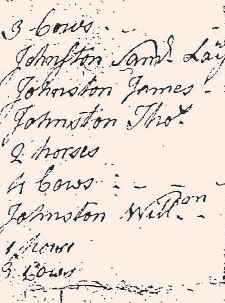 3 Cows
Johnston Saml. Law
Johnston James
Johnston Thos.
2 horses
4 Cows
Johnston Willson
1 horse
3 Cows